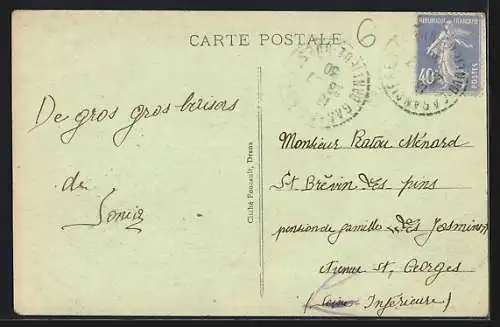 CARTE POSTALE
6
REPUBLIQUE FRANÇAISE
40c
POSTES
De gros gros baisers
de
Sonia
Cliché Foucault, Dreux
Monsieur Ratou Ménard
St Brévin des pins
pension de famille des Jasmins
Avenue St Georges
(Loire Inférieure)